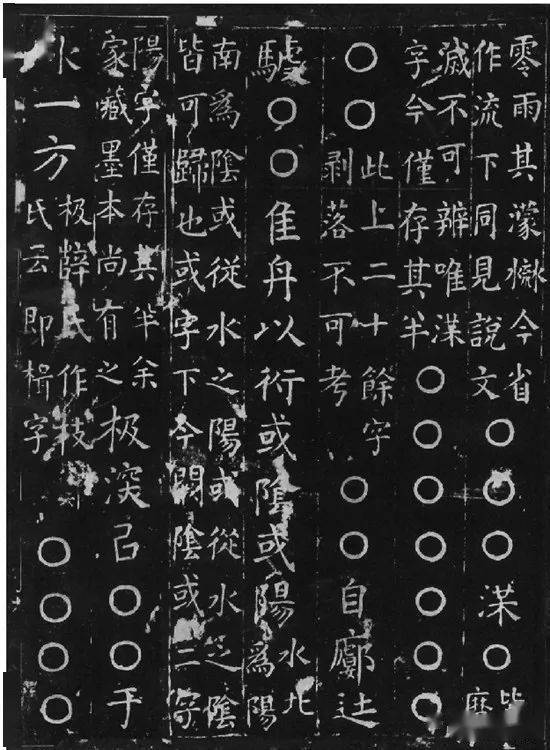 零雨其濛㵋今省
作流下同見說文
○○○渫○
皆
磨
滅不可辨唯渫
字今僅存其半
○○○○○○○
○○
此上二十餘字
剥落不可考
○○自廓辻
○○隹舟以衍或陰或陽
水北
爲陽
南爲陰或從水之陽或從水之陰
皆可歸也或字下今闕陰或二字
陽字僅存其半余
家藏墨本尚有之
极深㠯○○于
水一方
极薛氏作枝
氏云即楫字
○○○○